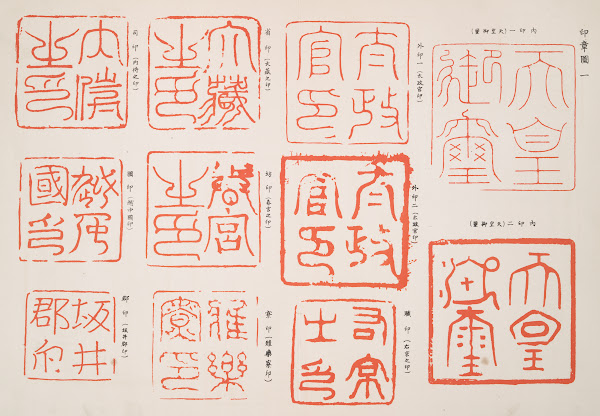 印章圖 一
內印一(天皇御璽)
天皇
御璽
內印二(天皇御璽)
天皇
御璽
外印一(太政官印)
太政
官印
外印二(太政官印)
太政
官印
職印(右京之印)
之印
省印(大藏之印)
大藏
之印
坊印(春宮之印)
春宮
之印
寮印(雅樂寮印)
雅樂
寮印
司印(內侍之印)
內侍
之印
國印
國印
郡印(坂井郡印)
坂井
郡印